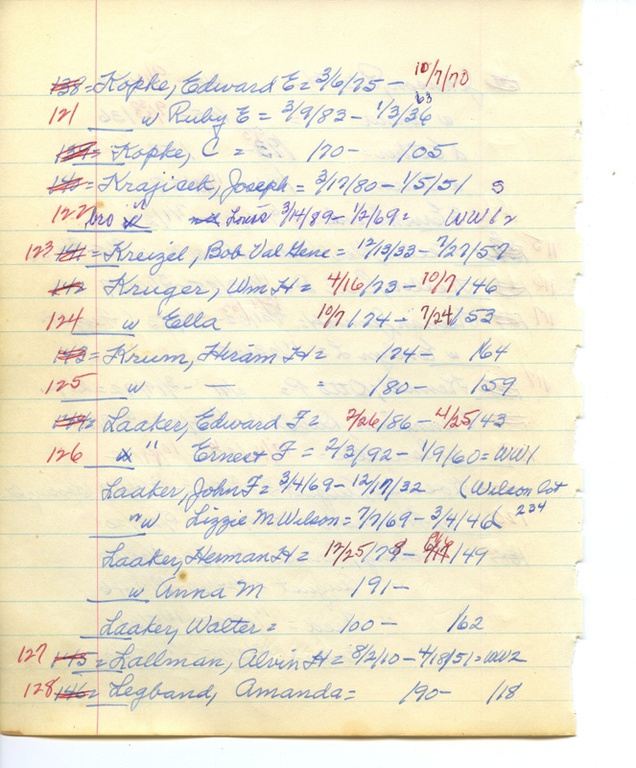 138= Kopke, Edward E= 3/6/75 - 10/7/70
121 w Ruby E = 3/9/83 - 1/3/36 63
139= Kopke, C = /70 - /05
140= Krajicek, Joseph = 3/17/80 - 1/5/51 S
122 bro Louis 3/14/89 - 1/2/69= WW1
123 141= Kreizel, Bob Val Gene = 12/13/33 - 7/27/57
142 Kruger, Wm H = 4/16/73 - 10/7/46
124 w Ella 10/7/74 - 7/24/53
143= Krum, Hiram H= /74 - /64
125 w — = /80 - /59
144= Laaker, Edward F= 2/26/86 - 4/25/43
126 " Ernest F = 2/3/92 - 1/9/60= WW1
Laaker, John F= 3/4/69 - 12/17/32 (Wilson Lot
" w Lizzie M Wilson= 7/7/69 - 3/4/46 ( 234
Laaker, Herman H= 12/25/78 - /49
w Anna M 191-
Laaker, Walter = /00 - /62
127 145= Lallman, Alvin H= 8/2/10 - 4/18/51= WW2
128 146= Legband, Amanda= /90 - /18